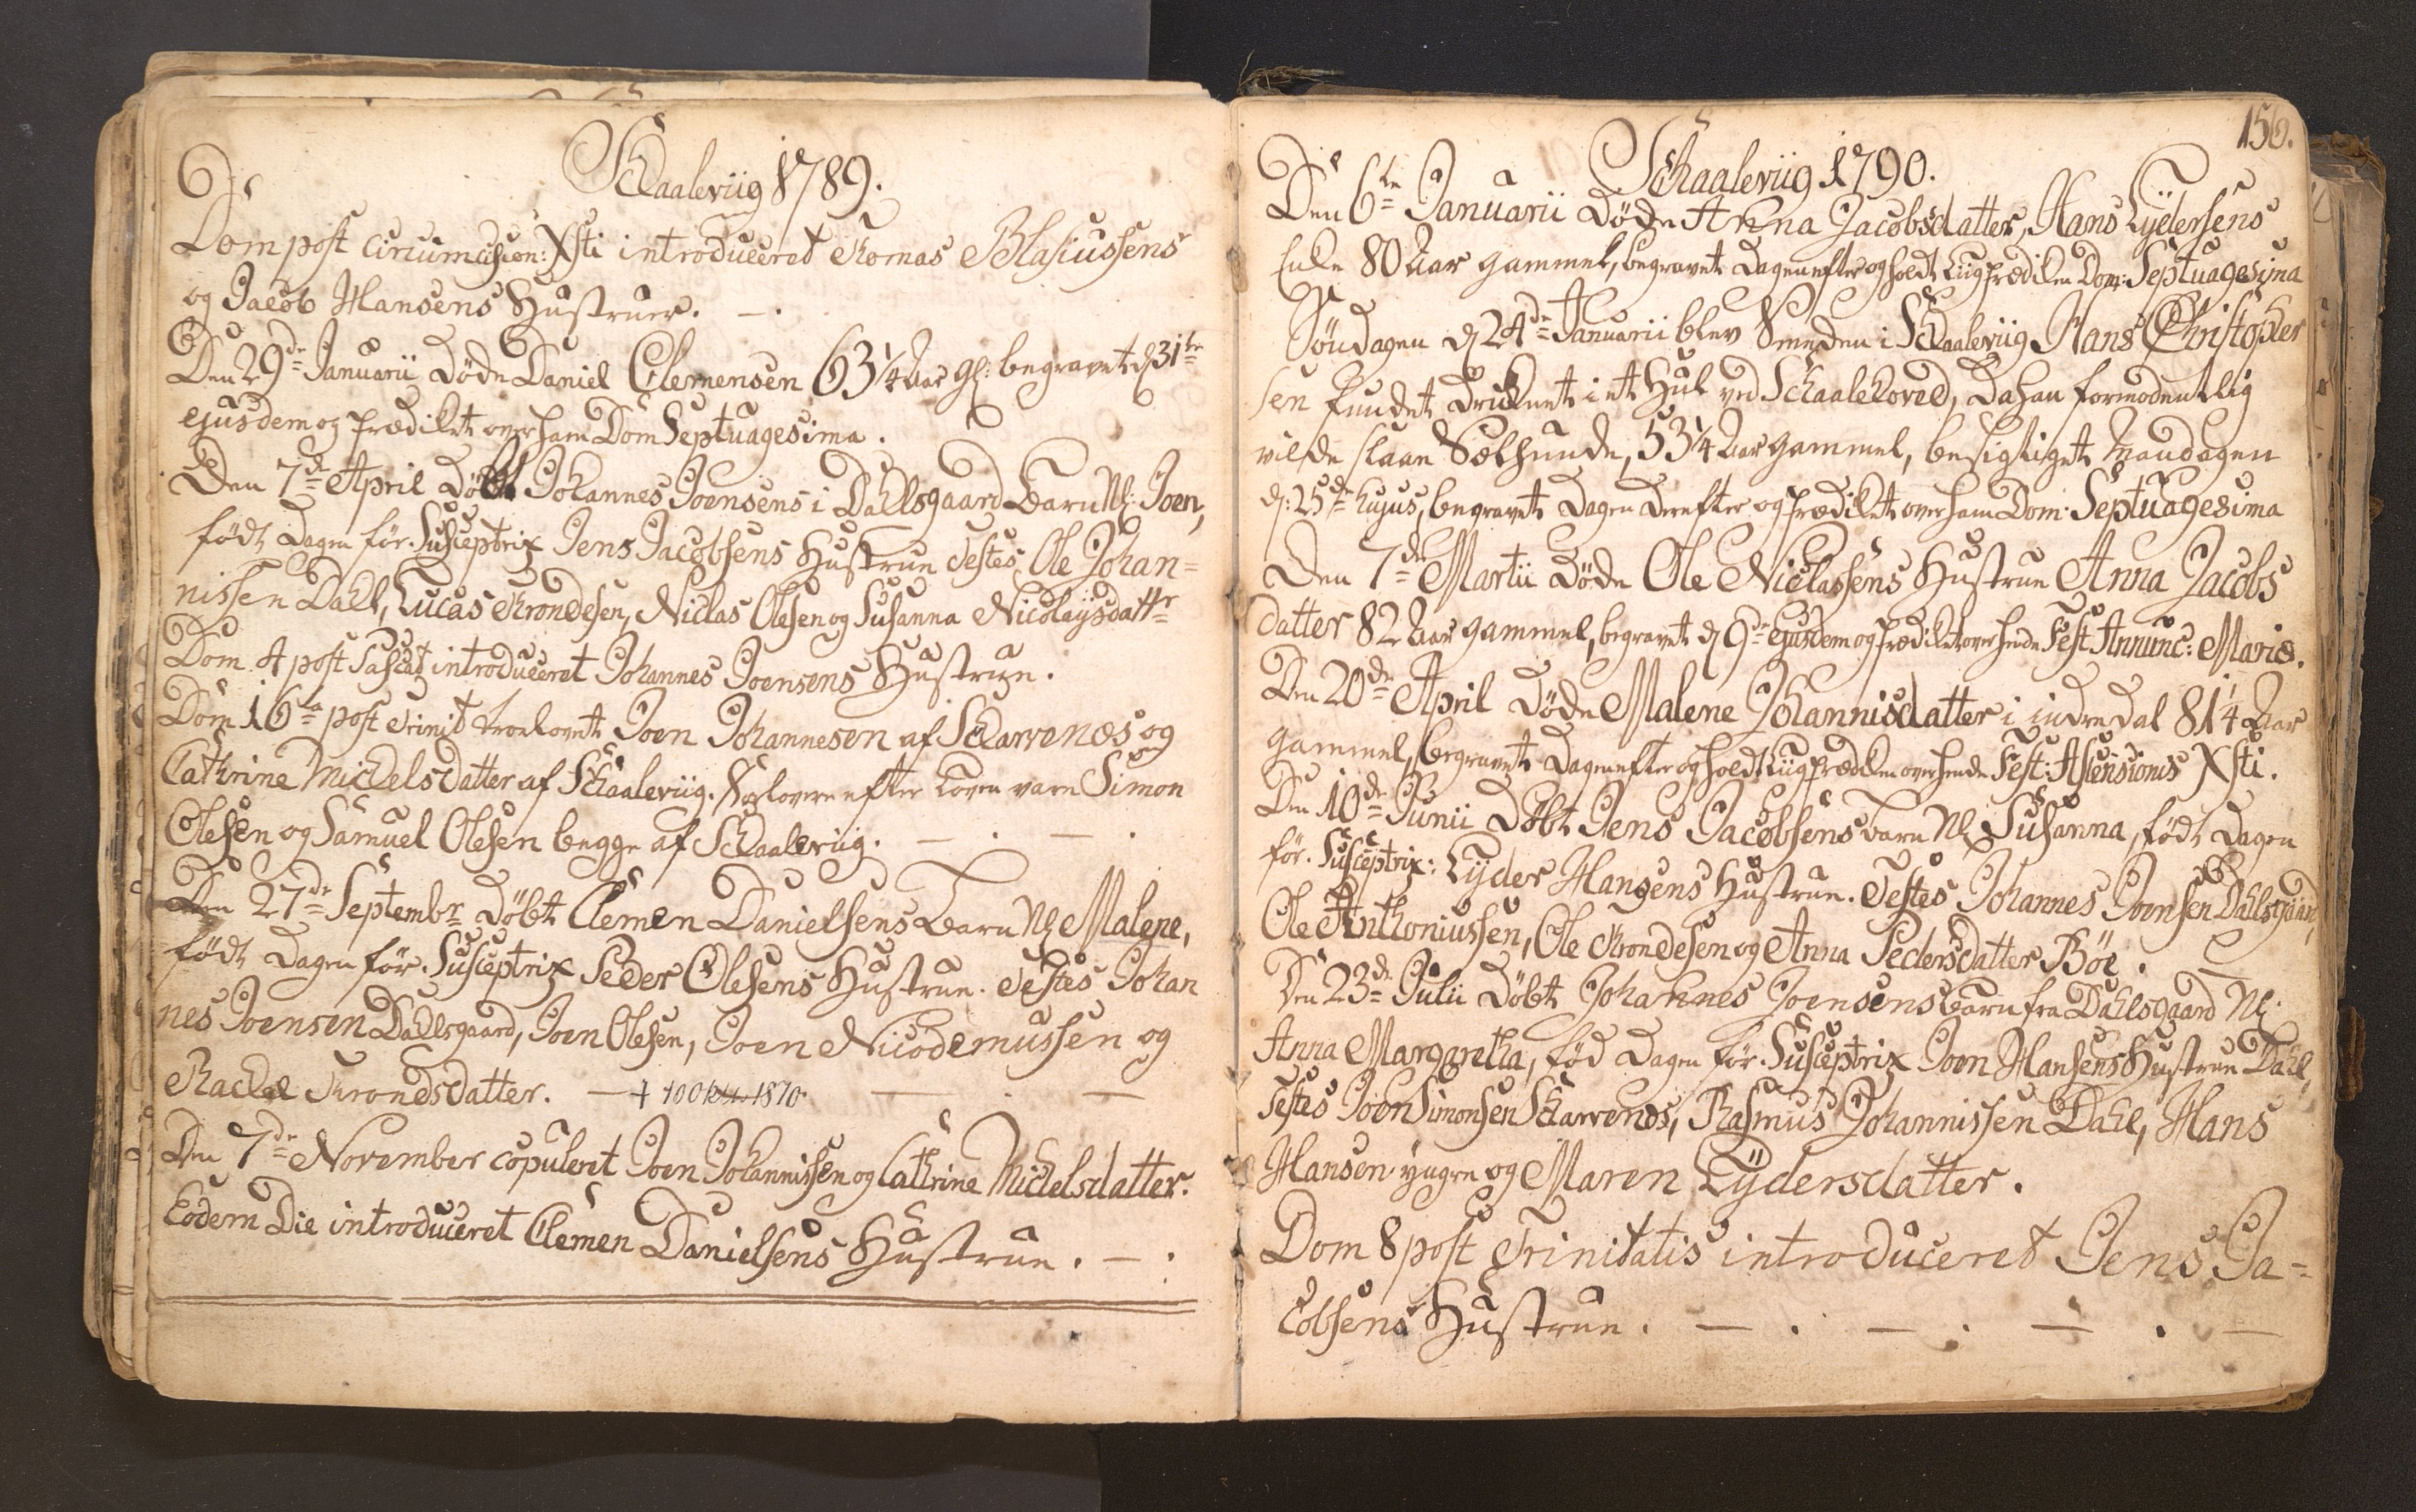 Schaaleviig 1789.
Dom post circumcision: Xsti introduceret Thomas Blasiussens
og Jacob Hansens Hustruer. — .
Den 29de Januarii døde Daniel Clemensen 63 1/4 Aar gl: begravet d 31te
ejusdem og Prædiket over ham Dom Septuagesima.
Den 7de April Døbt Johannes Joensens i Dahlsgaard Barn Nl: Joen,
født Dagen før. Susceptrix Jens Jacobsens Hustrue Testes Ole Johan=
nissen Dahl, Lucas Trondesen, Niclas Olesen og Susanna Nicolaysdattr
Dom. 4 post Pascat introduceret Johannes Joensens Hustrue.
Dom. 16ta post Trinit trolovet Joen Johannesen af Scharvenæs og
Cathrine Michelsdatter af Schaaleviig. Forlovere efter Loven vare Simon
Olesen og Samuel Olesen begge af Schaaleviig. — . — .
Den 27de Septembr Døbt Clemen Danielsens Barn Nl Malene,
født Dagen før. Susceptrix Peder Olesens Hustrue. Testes Johan
nes Joensen Dahlsgaard, Joen Olesen, Joen Nicodemussen og
Rachel Trondsdatter. — † 1870. — . —
Den 7de November copuleret Joen Johannissen og Cathrine Michelsdatter.
Eodem Die introduceret Clemen Danielsens Hustrue. — .
156.
Schaaleviig 1790.
Den 6te Januarii Døde Anna Jacobsdatter, Hans Lydersens
Enke 80 Aar gammel, begravet Dagen efter og holdt Liigprædiken Dom: Septuagesima
Søndagen d 24de Januarii blev Smeden i Schaaleviig Hans Christopher
sen fundet Druknet i et Hul ved Schaalehoved, da han formodentlig
vilde slaae Sælhunde, 53 1/4 Aar gammel, besigtiget Mandagen
d: 25de hujus, begravet Dagen derefter og Prædiket over ham Dom: Septuagesima
Den 7de Martii Døde Ole Niclassens Hustrue Anna Jacobs
datter 82 Aar gammel, begravet d 9de ejusdem og Prædiket over hende Fest Annunc: Mariæ.
Den 20de April Døde Malene Johannisdatter i indredal 81 1/4 Aar
gammel, begravet Dagen efter og holdt Liigprædiken over hende Fest: Ascensionis Xsti.
Den 10de Junii Døbt Jens Jacobsens barn Nl Susanna, født Dagen
før. Susceptrix: Lyder Hansens Hustrue. Testes Johannes Joensen Dahlsgaard,
Ole Anthoniussen, Ole Trondesen og Anna Pedersdatter Bøe.
Den 23de Julii Døbt Johannes Joensens barn fra Dahlsgaard Nl:
Anna Margaretha, fød Dagen før. Susceptrix Joen Hansens Hustrue Dahl,
Testes Joen Simonsen Scharvenæs, Rasmus Johannissen Dahl, Hans
Hansen yngre og Maren Lydersdatter.
Dom 8 post Trinitatis introduceret Jens Ja=
cobsens Hustrue. — . — . — . —